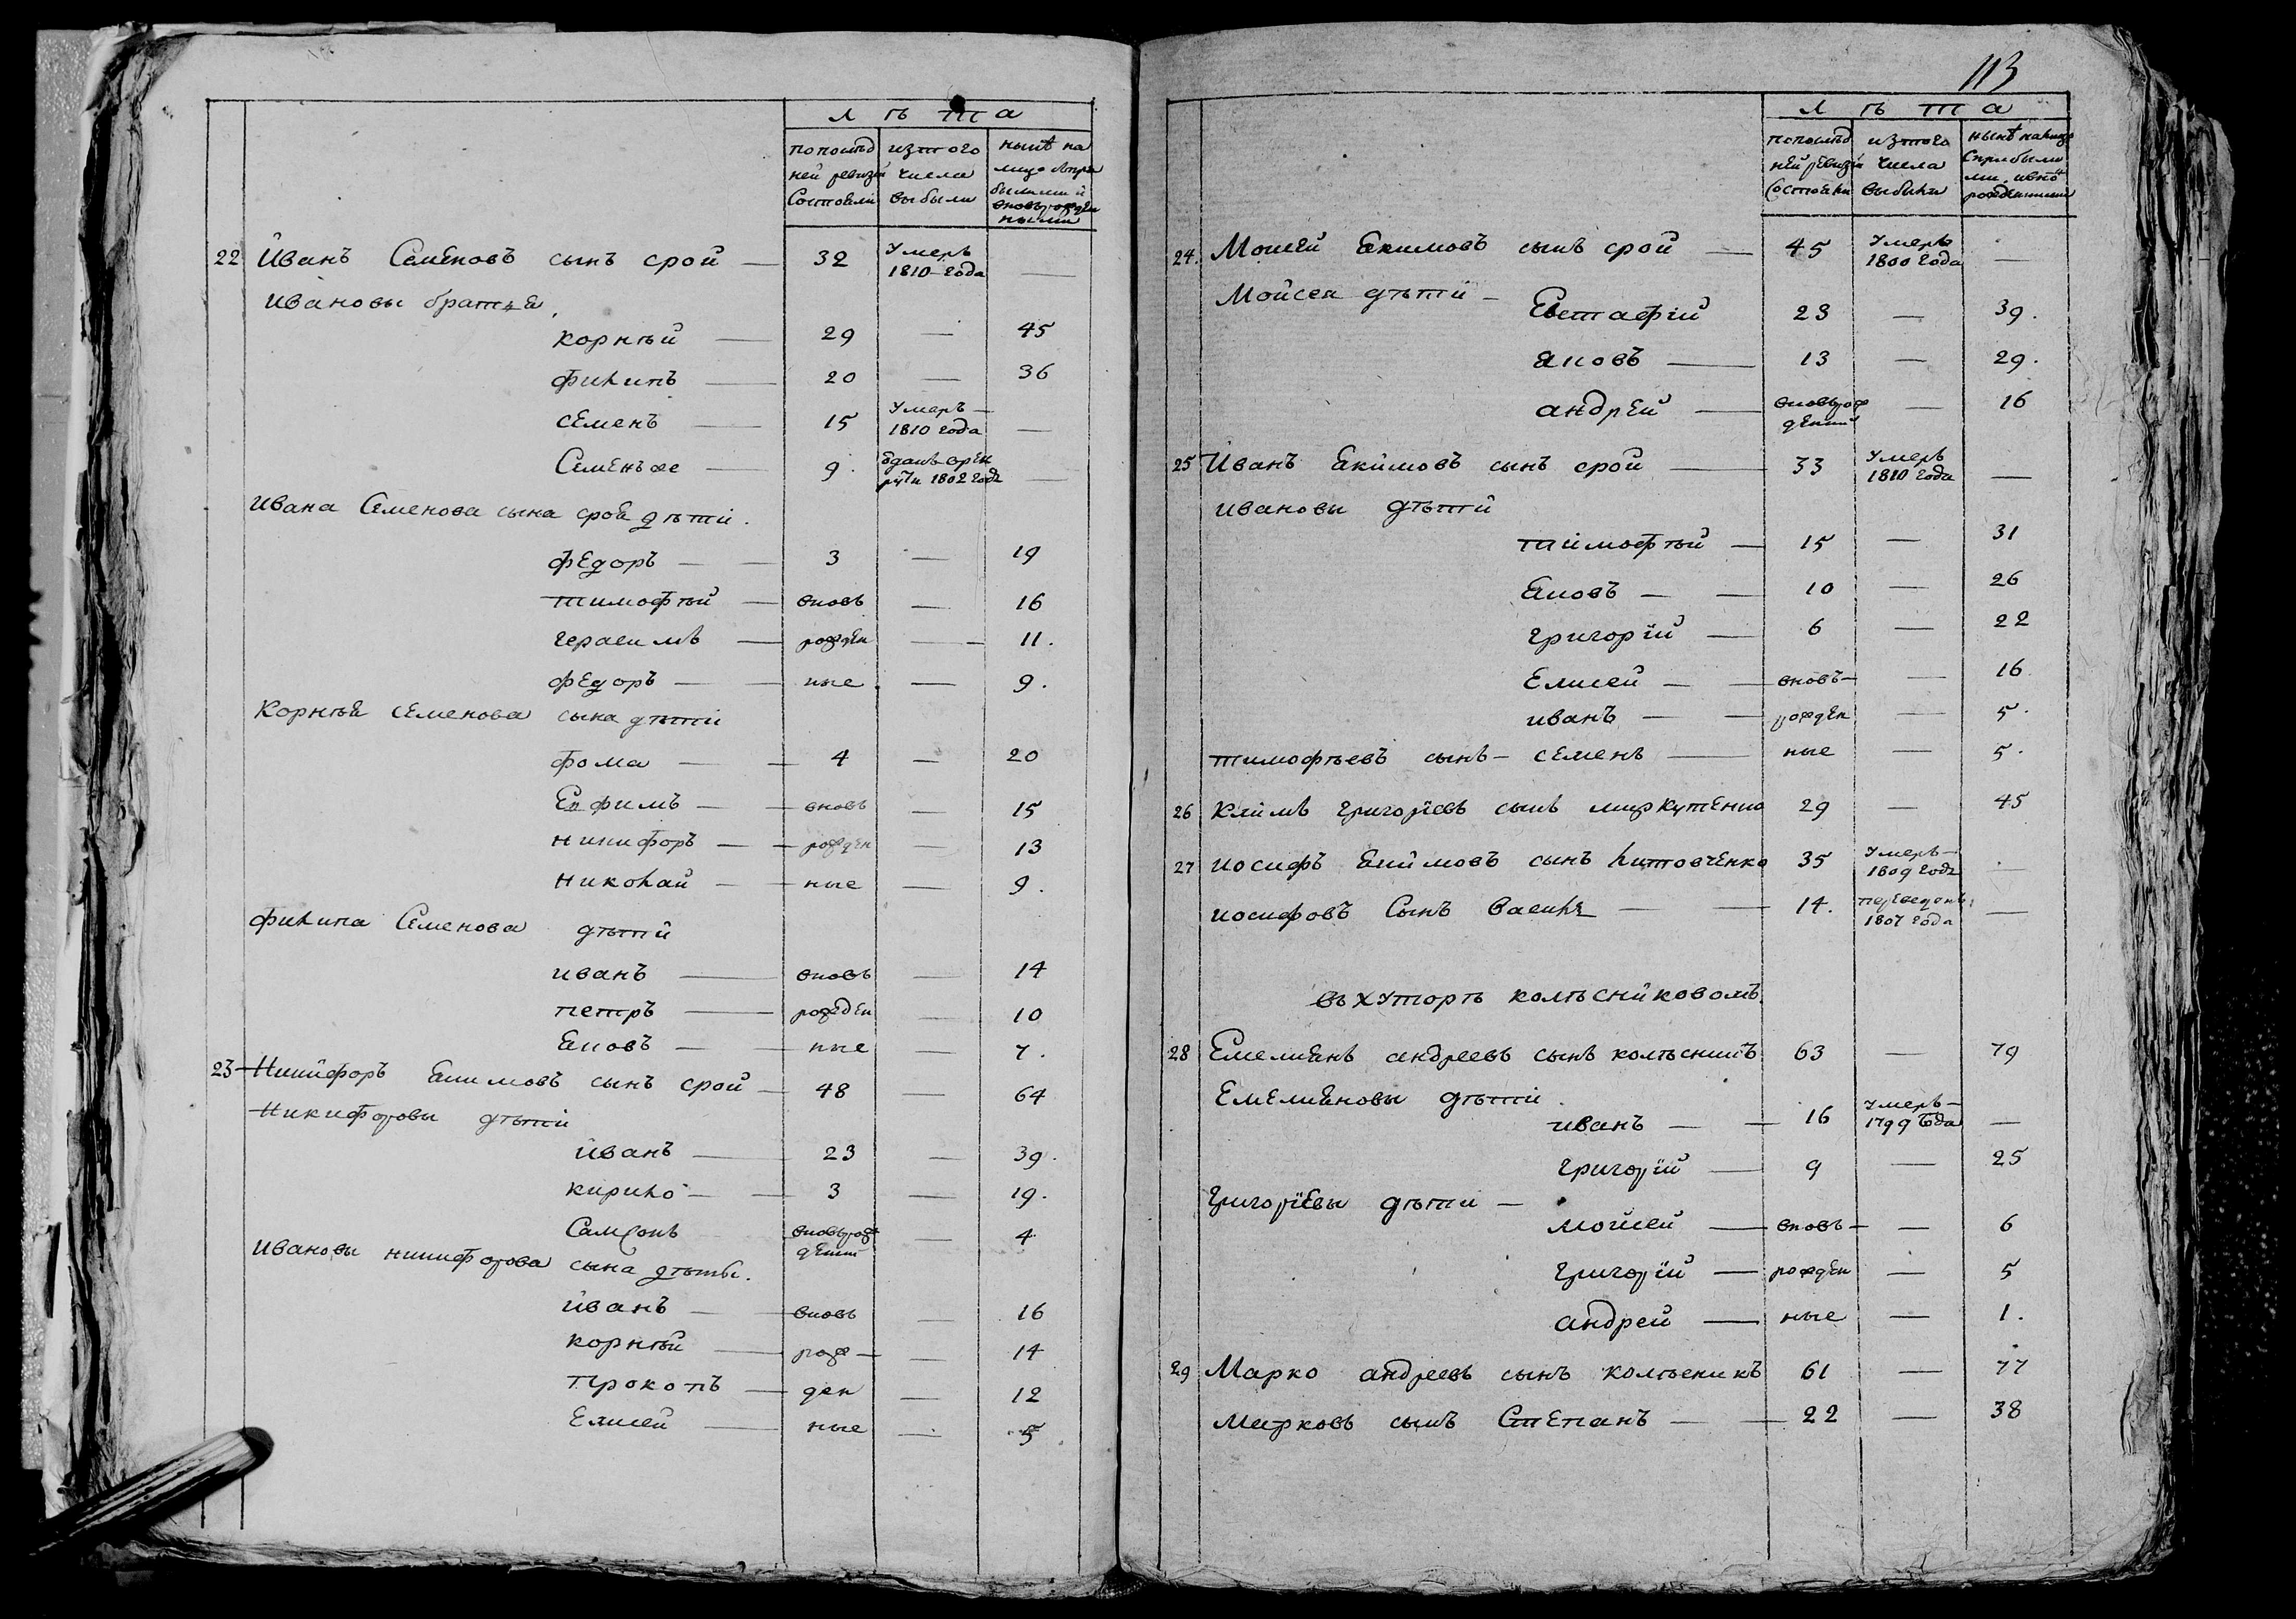 лѣта
попослѣд
ней ревизіи
состояли
изтого
числа
выбыли
нынѣ на
лицо
22 Иванъ Семеновъ сынъ срой — 32 Умеръ 1810 года —
Ивановы братья
корнѣй — 29 — 45
филипъ — 20 — 36
семенъ — 15 Умеръ 1810 года —
Семенъ же — 9. 1802 года —
Ивана Семенова сына сроя дѣти.
федоръ — 3 — 19
тимофѣй — вновь — 16
герасимъ — рожден — 11.
федоръ — ные — 9.
Корнѣя семенова сына дѣти
фома — 4 — 20
Ефимъ — вновь — 15
никифоръ — рожден — 13
николай — ные — 9.
филипа Семенова дѣти
иванъ — вновь — 14
петръ — рожден — 10
Яковъ — ные — 7.
23 Никифоръ Якимовъ сынъ срой — 48 — 64
Никифоровы дѣти
иванъ — 23 — 39.
кирило — 3 — 19.
Самсонъ вновьрож — 4
денный
Ивановы никифорова сына дѣти.
иванъ — вновь — 16
корнѣй — рож — 14
прокопъ — ден — 12
Елисей — ные — 5
113
лѣта
попослѣд
ней ревизіи
состояли
изтого
числа
выбыли
нынѣ налицо
сприбылы
ми
24. Мойсей Якимовъ сынъ срой — 45 Умеръ 1800 года —
Мойсея дѣти —
Евстафій 23 — 39.
Яковъ — 13 — 29.
андрей — вновьрож — 16
денный
25 Иванъ Якимовъ сынъ срой — 33 Умеръ 1810 года —
ивановы дѣти
тимофѣй — 15 — 31
Яковъ — 10 — 26
григорій — 6 — 22
Елисей — вновь — 16
иванъ — рожден — 5.
тимофѣевъ сынъ — семенъ — ные — 5.
26 Климъ григорьевъ сынъ 29 — 45
27 иосифъ Якимовъ сынъ литовченко 35 Умеръ 1809 года —
иосифовъ Сынъ Василь — 14. переведенъ 1807 года —
въ хуторѣ колѣсниковомъ
28 Емельянъ андреевъ сынъ колѣсникъ 63 — 79
Емельяновы дѣти.
иванъ — 16 Умеръ 1799 года —
григорій — 9 — 25
григорьевы дѣти —
мойсей — вновь — 6
григорій — рожден — 5
андрей — ные — 1.
29 Марко андреевъ сынъ колѣсникъ 61 — 77
марковъ сынъ Степанъ — 22 — 38